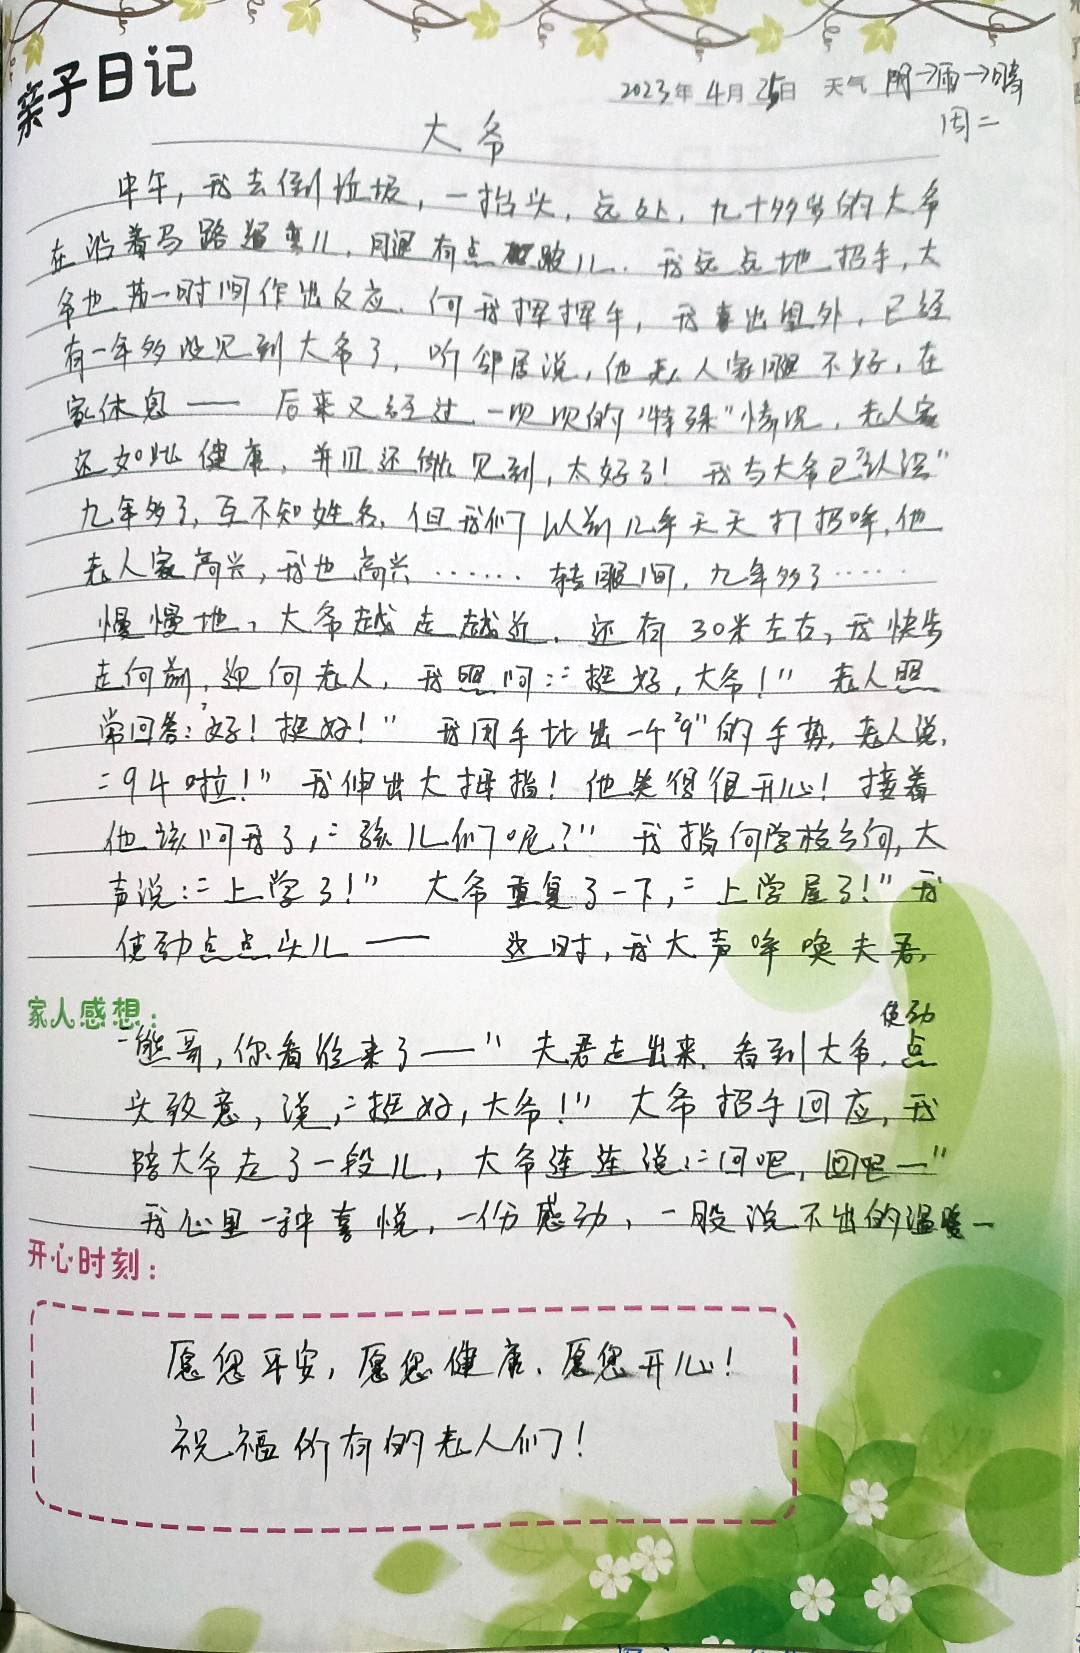 亲子日记
2023年4月25日 天气 阴→雨→晴
周二
大爷
中午，我去倒垃圾，一抬头，远处，九十多岁的大爷
在沿着马路遛弯儿，腿有点跛儿。我远远地招手，大
爷也第一时间作出反应，向我挥挥手，我喜出望外，已经
有一年多没见到大爷了，听邻居说，他老人家腿不好，在
家休息—— 后来又经过一次次的"特殊"情况，老人家
还如此健康，并且还能见到，太好了！我与大爷已"认识"
九年多了，互不知姓名，但我们以前几年天天打招呼，他
老人家高兴，我也高兴…… 转眼间，九年多了……
慢慢地，大爷越走越近，还有30米左右，我快步
走向前，迎向老人，我照问："挺好，大爷！" 老人照
常回答："好！挺好！" 我用手比出一个"9"的手势，老人说，
"94啦！" 我伸出大拇指！他笑得很开心！接着
他该问我了，"孩儿们呢？" 我指向学校方向，大
声说："上学了！" 大爷重复了一下，"上学屋了！"我
使劲点点头儿—— 这时，我大声呼唤夫君，
家人感想：
"熊哥，你看谁来了——" 夫君走出来，看到大爷，使劲点
头致意，说，"挺好，大爷！" 大爷招手回应，我
陪大爷走了一段儿，大爷连连说："回吧，回吧—"
我心里一种喜悦，一份感动，一股说不出的温暖—
开心时刻：
愿您平安，愿您健康，愿您开心！
祝福所有的老人们！